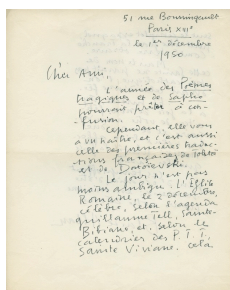 51 rue Boussingault
Paris XIIIe
le 1er décembre
1950
Cher Ami,
L'année des Poèmes
tragiques et de Sapho
pourrait prêter à con-
fusion.
Cependant, elle vous
a vu naître, et c'est aussi
celle des premières traduc-
tions françaises de Tolstoï
et de Dostoïevski.
Le jour n'est pas
moins ambigu. L'Église
Romaine, le 2 décembre,
célèbre, selon l'agenda
Guillaume Tell, Sainte
Bibiane et, selon le
calendrier des P.T.T.,
Sainte Viviane. Cela